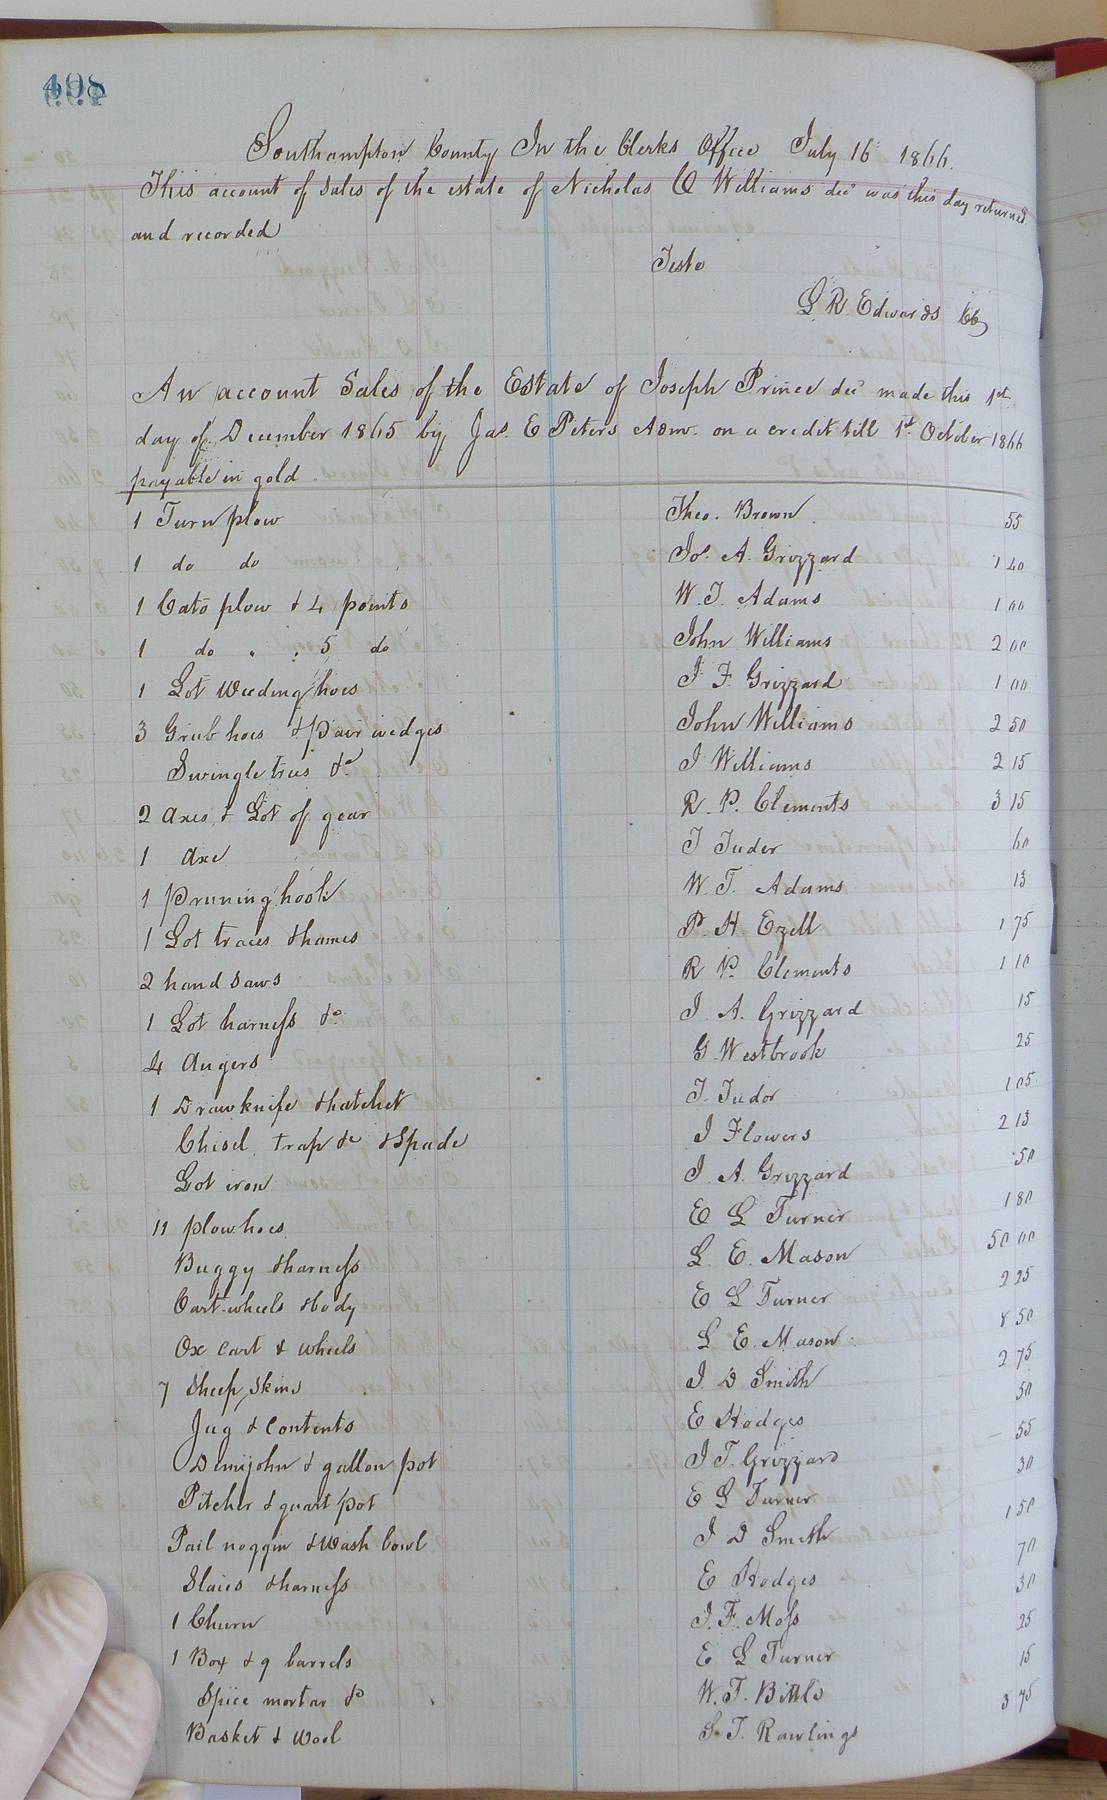 498
Southampton County In the Clerks Office July 16 1866.
This account of sales of the estate of Nicholas Williams decd was this day returned
and recorded
Teste
L R. Edwards
An account Sales of the Estate of Joseph Prince decd made this 1st
day of December 1865 by Jas. E Peters Adm. on a credit till 1st October 1866
payable in gold
1 Turn plow Theo. Brown 55
1 do do Jos. A. Grizzard 1 40
1 Cato plow & 4 points W. T. Adams 1 00
1 do " " 5 do John Williams 2 00
1 Lot Weeding hoes J F. Grizzard 1 00
3 Grub hoes & pair wedges John Williams 2 50
Swingletrees &c J Williams 2 15
2 Axes & Lot of gear R. P. Clements 3 15
1 Axe T Tudor 60
1 Pruning hook W. T. Adams 13
1 Lot traces & hames P. H. Ezell 1 75
2 hand saws R P. Clements 1 10
1 Lot harness &c J. A. Grizzard 15
4 Augers G. Westbrook 25
1 Drawknife & hatchet T. Tudor 1 05
Chisel, trap &c & Spade J Flowers 2 13
Lot iron J. A. Grizzard 50
11 plow hoes E L Turner 1 80
Buggy & harness L. E. Mason 50 00
Cart wheels & body E L Turner 2 25
Ox cart & wheels L E. Mason 8 50
7 Sheep skins J. D Smith 2 75
Jug & Contents E Hodges 50
Demijohn & gallon pot J T. Grizzard 55
Pitcher & quart pot E L Turner 30
Pail noggin & Wash bowl J D Smith 1 50
Slaies & harness E Hodges 70
1 Churn J. F. Moss 30
1 Box & 9 barrels E L Turner 25
Spice mortar &c W. T. Bittle 15
Basket & Wool S. T. Rawlings 3 75